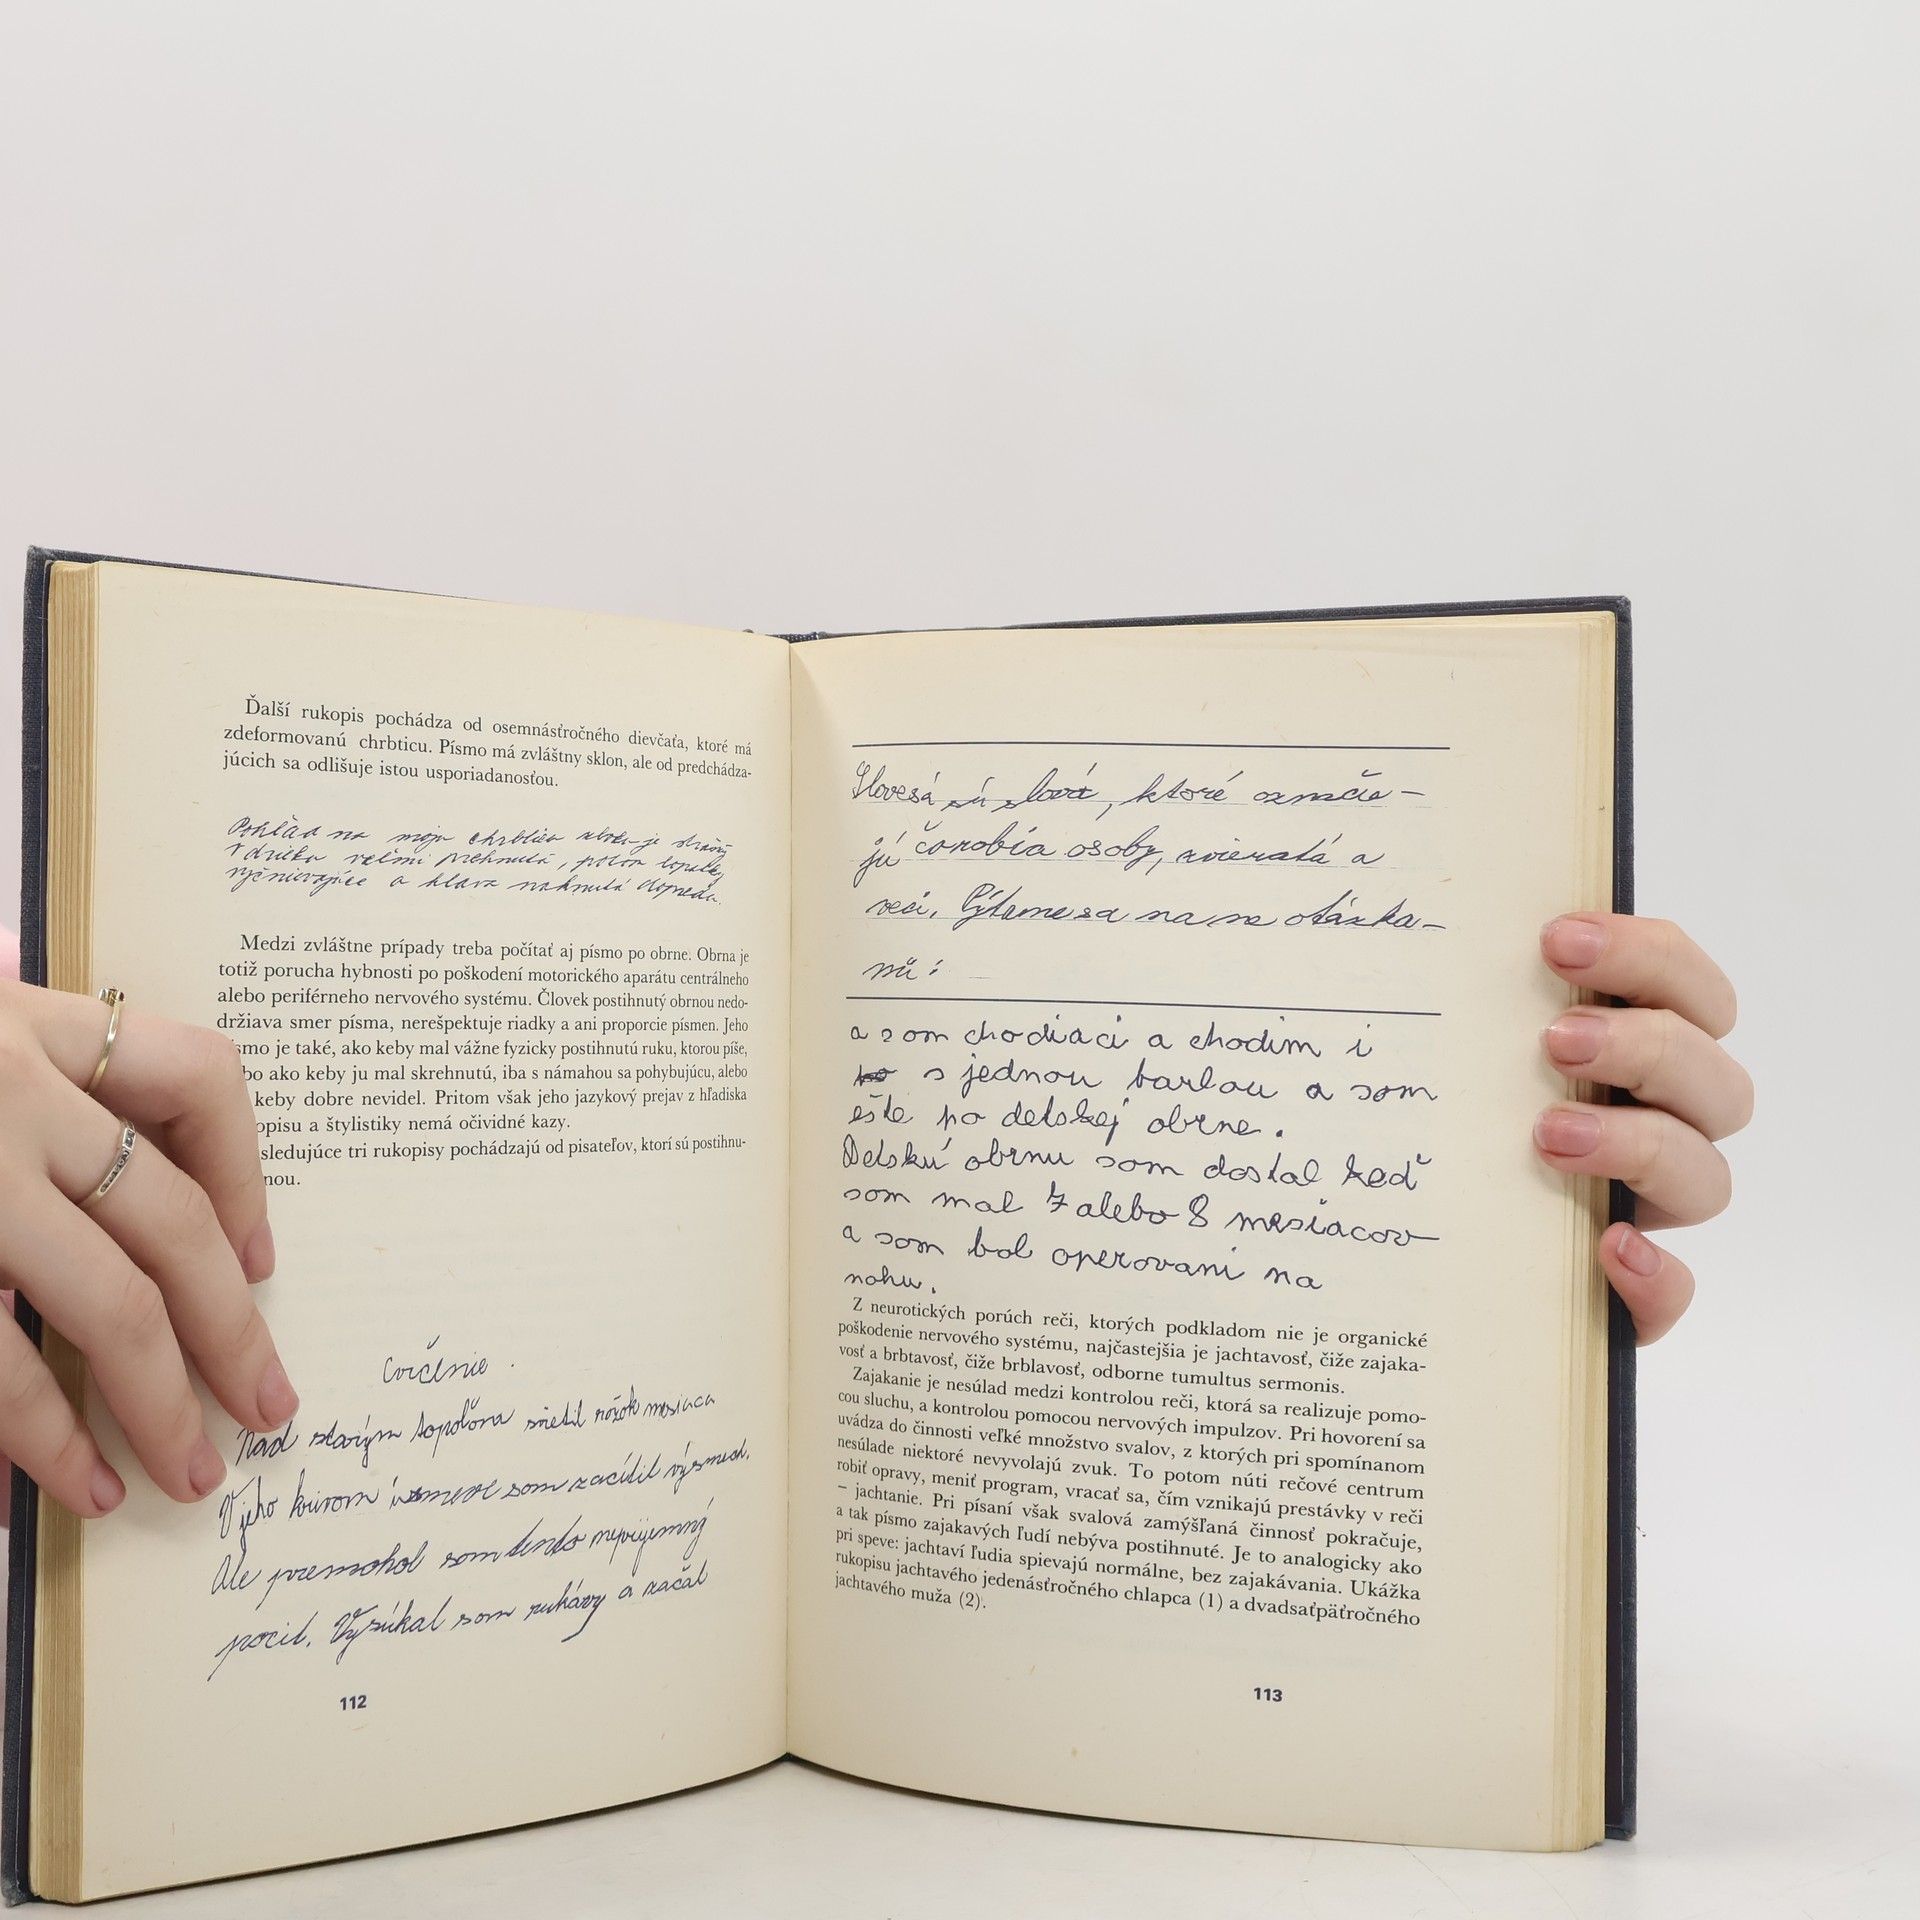 Ďalší rukopis pochádza od osemnásťročného dievčaťa, ktoré má
zdeformovanú chrbticu. Písmo má zvláštny sklon, ale od predchádza-
júcich sa odlišuje istou usporiadanosťou.
Pohľad na moju chrbticu
veľmi prehnutá, potom lopatky
vyčnievajúce a hlava nahnutá dopredu.
Medzi zvláštne prípady treba počítať aj písmo po obrne. Obrna je
totiž porucha hybnosti po poškodení motorického aparátu centrálneho
alebo periférneho nervového systému. Človek postihnutý obrnou nedo-
držiava smer písma, nerešpektuje riadky a ani proporcie písmen. Jeho
smo je také, ako keby mal vážne fyzicky postihnutú ruku, ktorou píše,
bo ako keby ju mal skrehnutú, iba s námahou sa pohybujúcu, alebo
keby dobre nevidel. Pritom však jeho jazykový prejav z hľadiska
opisu a štylistiky nemá očividné kazy.
sledujúce tri rukopisy pochádzajú od pisateľov, ktorí sú postihnu-
nou.
Cvičenie.
Nad starým topoľom svietil rôžok mesiaca
V jeho krivom úsmeve som zacítil výsmech.
Ale premohol som tento nepríjemný
pocit. Vysúkal som rukávy a začal
112
Slovesá sú slová, ktoré označu-
jú čo robia osoby, zvieratá a
veci. Pýtame sa na ne otázka-
mi:
a som chodiaci a chodim i
s jednou barlou a som
ešte po detskej obrne.
Detskú obrnu som dostal keď
som mal 7 alebo 8 mesiacov
a som bol operovani na
nohu.
Z neurotických porúch reči, ktorých podkladom nie je organické
poškodenie nervového systému, najčastejšia je jachtavosť, čiže zajaka-
vosť a brbtavosť, čiže brblavosť, odborne tumultus sermonis.
Zajakanie je nesúlad medzi kontrolou reči, ktorá sa realizuje pomo-
cou sluchu, a kontrolou pomocou nervových impulzov. Pri hovorení sa
uvádza do činnosti veľké množstvo svalov, z ktorých pri spomínanom
nesúlade niektoré nevyvolajú zvuk. To potom núti rečové centrum
robiť opravy, meniť program, vracať sa, čím vznikajú prestávky v reči
– jachtanie. Pri písaní však svalová zamýšľaná činnosť pokračuje,
a tak písmo zajakavých ľudí nebýva postihnuté. Je to analogicky ako
pri speve: jachtaví ľudia spievajú normálne, bez zajakávania. Ukážka
rukopisu jachtavého jedenásťročného chlapca (1) a dvadsaťpäťročného
jachtavého muža (2).
113